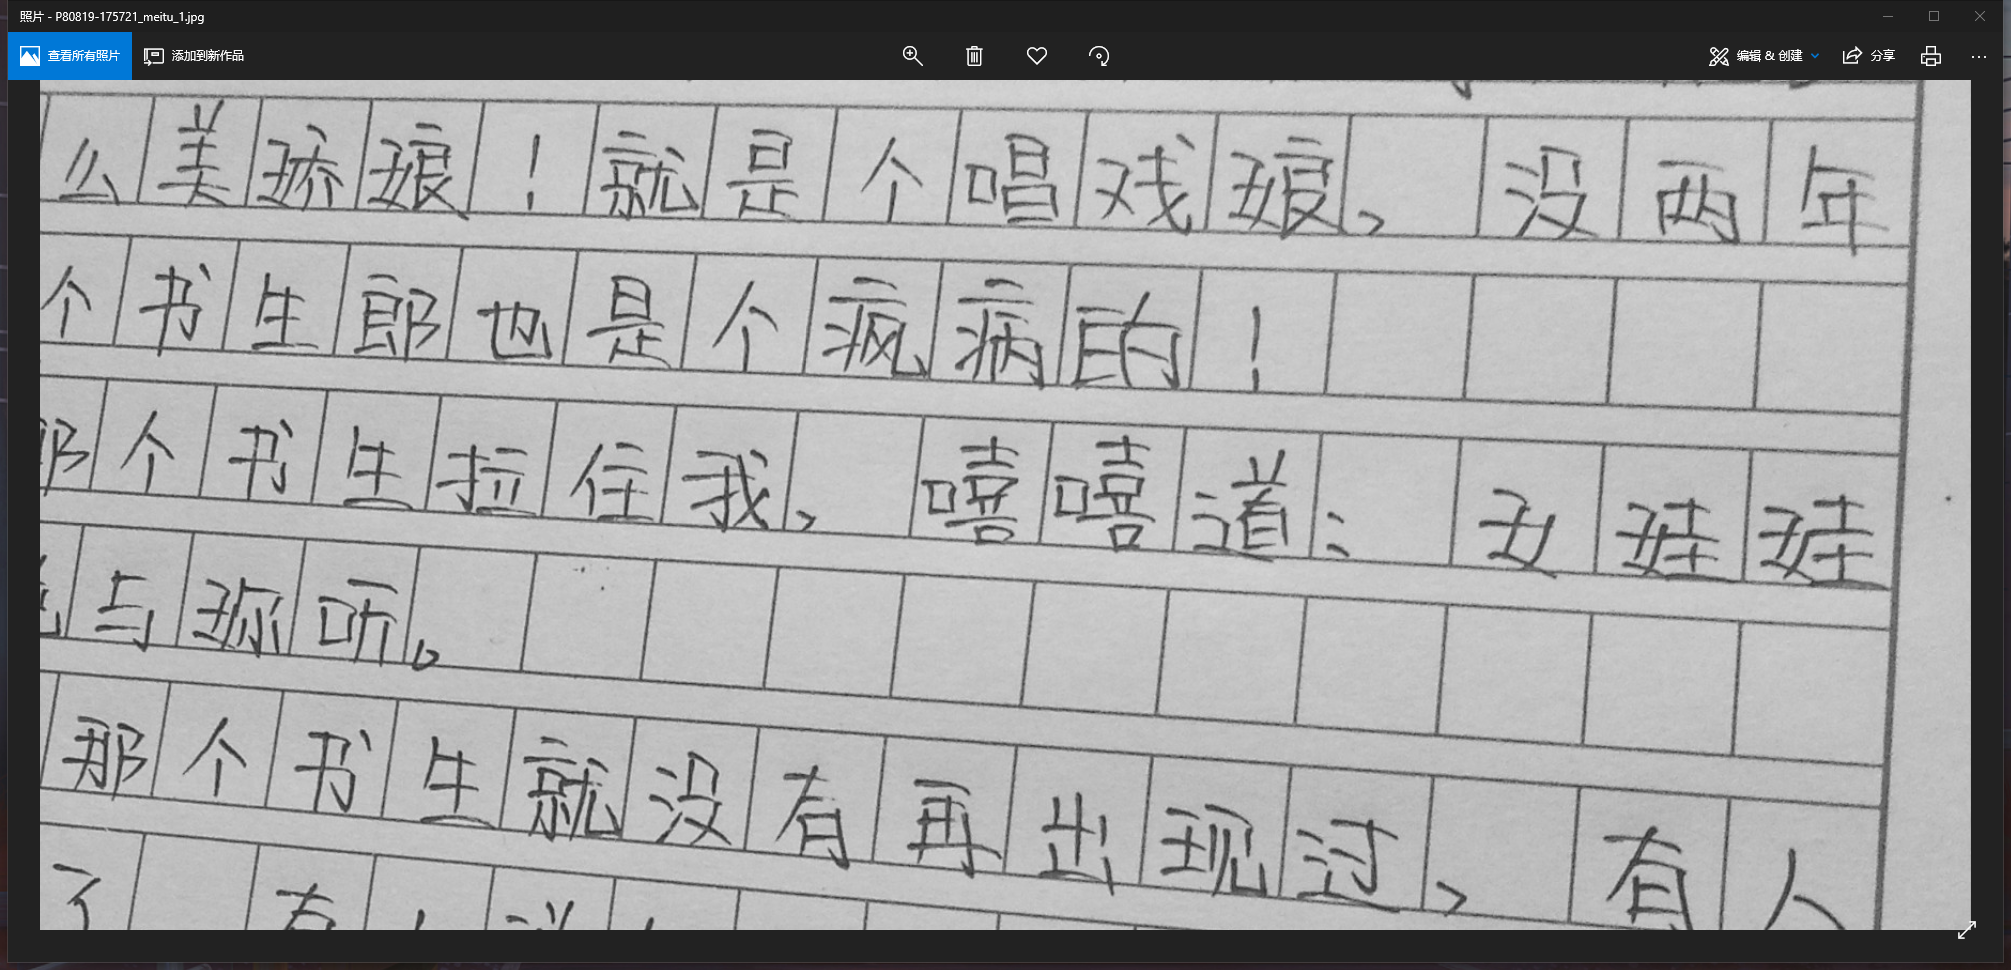 照片 - P80819-175721_meitu_1.jpg
查看所有照片 添加到新作品 编辑 & 创建 分享
么美娇娘！就是个唱戏娘，没两年
个书生郎也是个疯病的！
那个书生拉住我，嘻嘻道：女娃娃
与你听。
那个书生就没有再出现过，有人
了 有